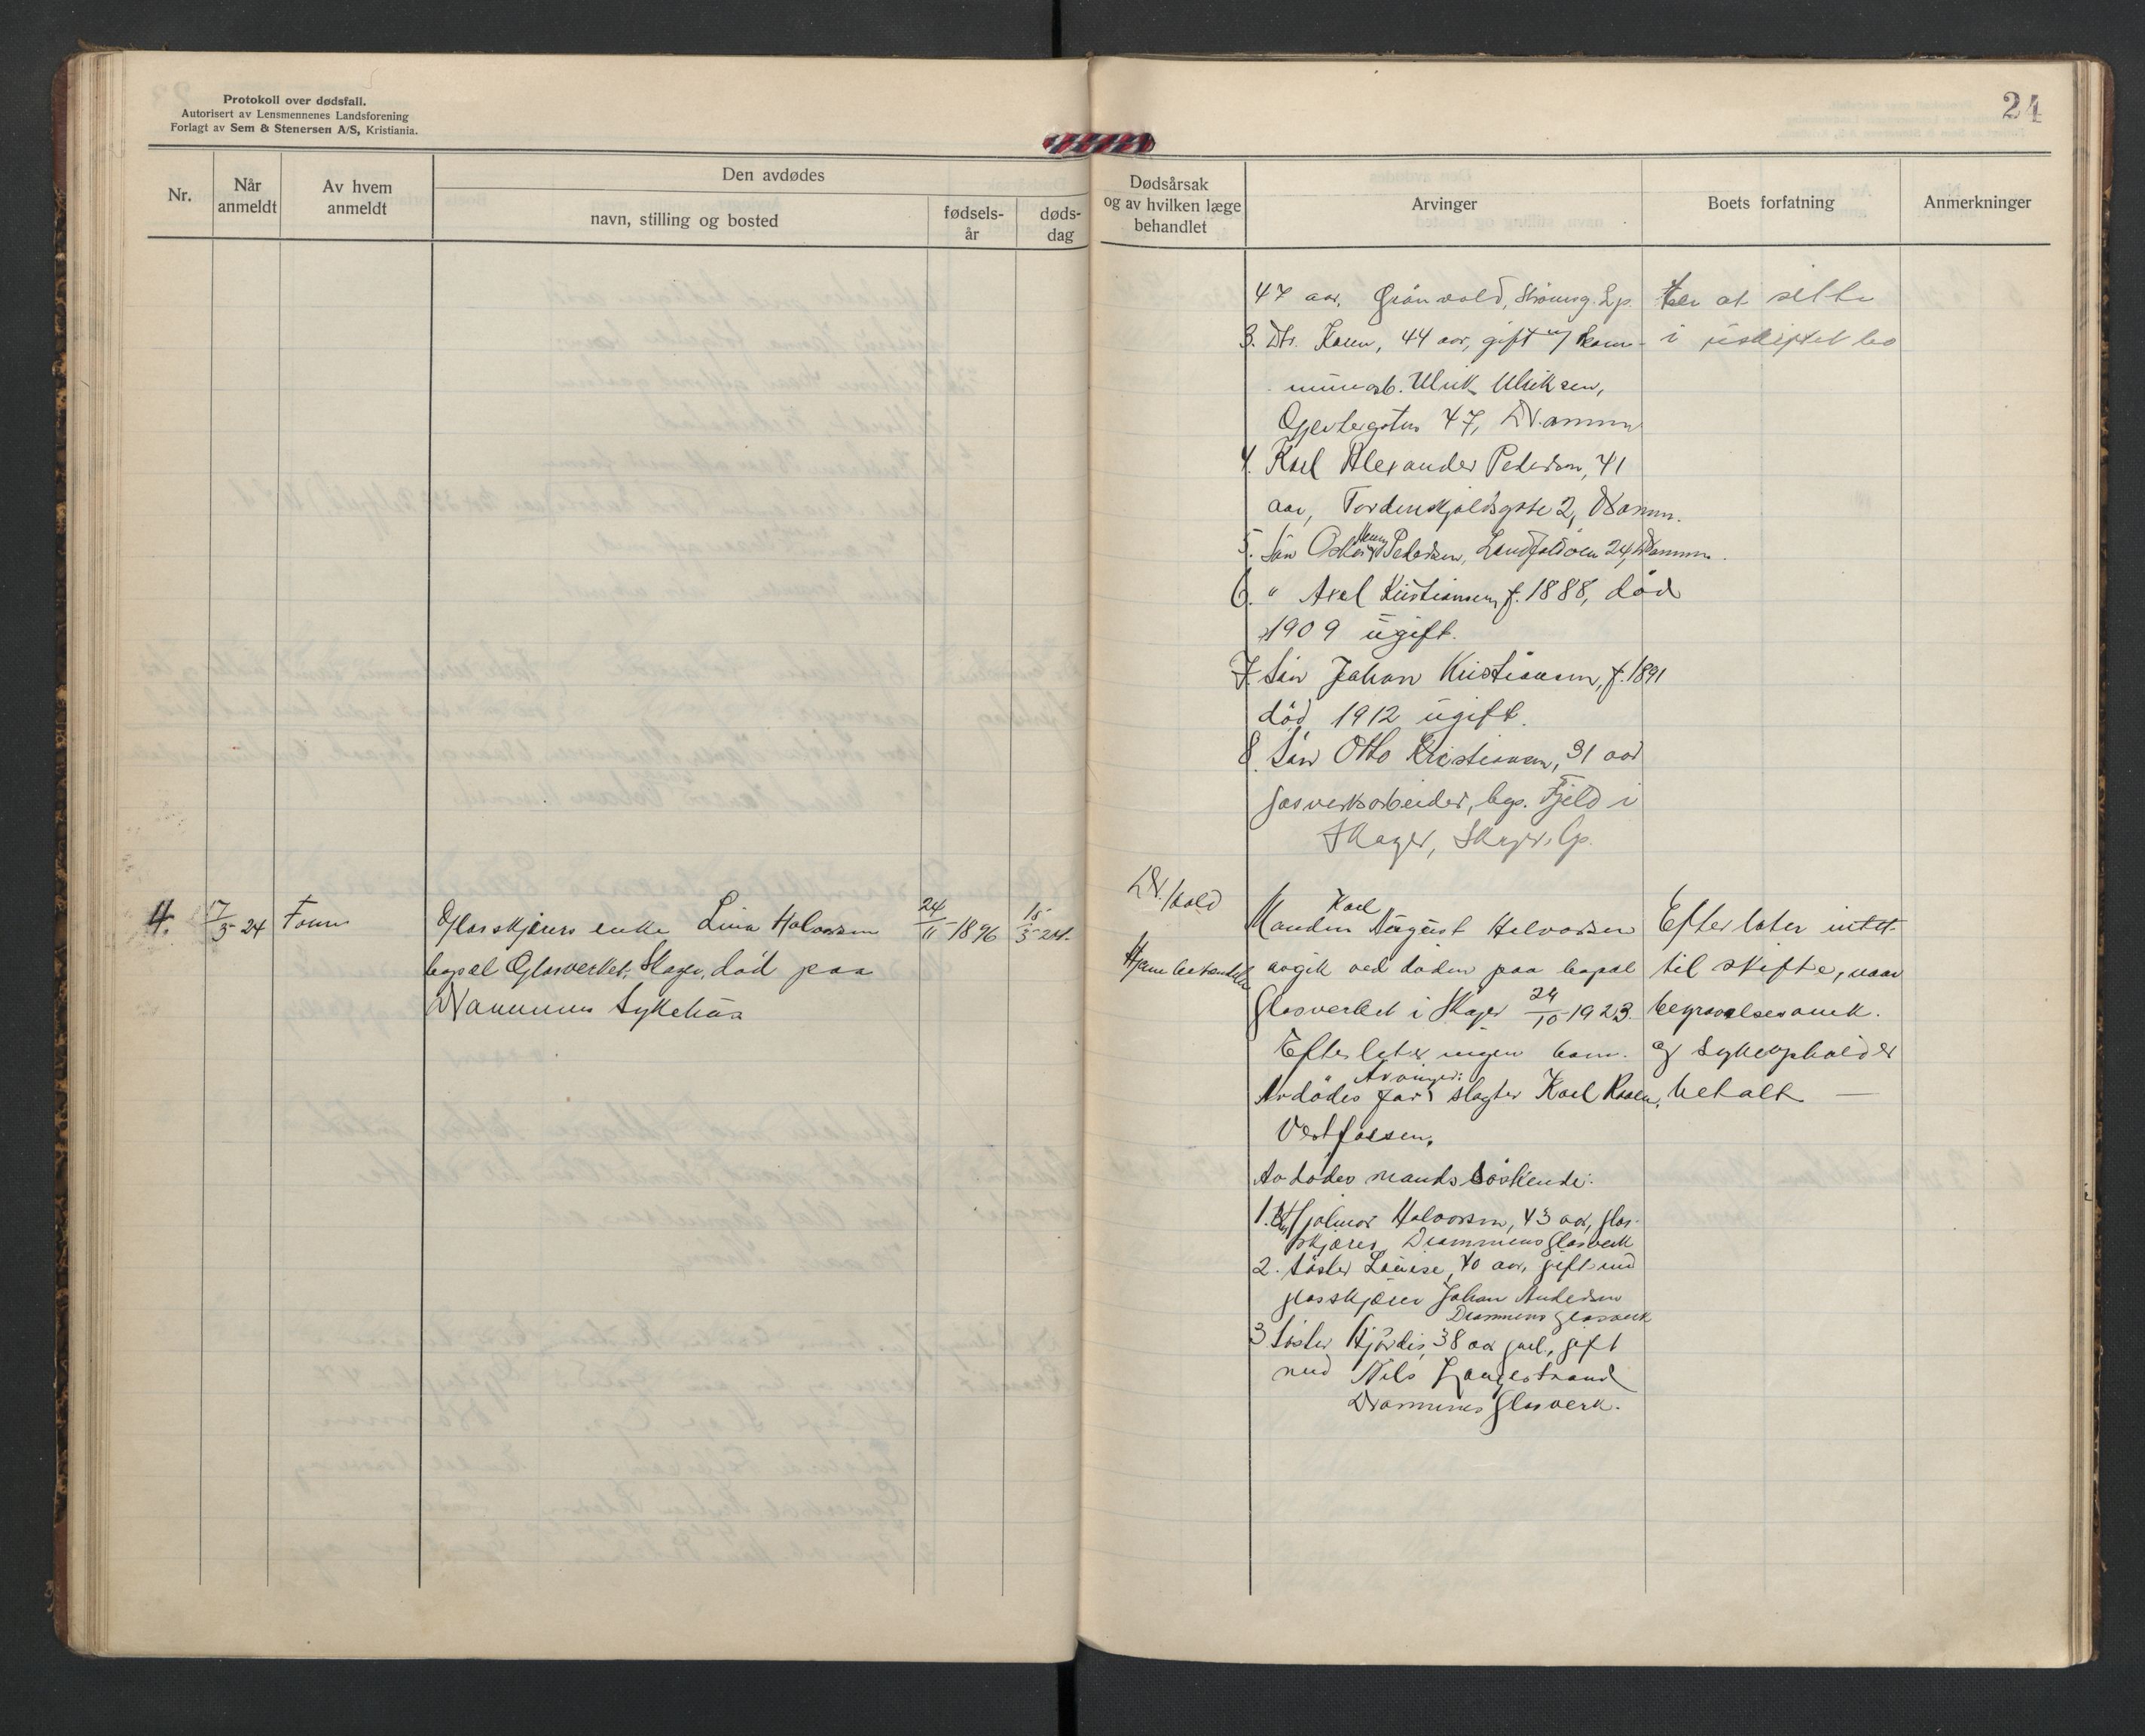 Protokoll over dødsfall.
Autorisert av Lensmennenes Landsforening
Forlagt av Sem & Stenersen A/S, Kristiania.
24
Nr.
Når anmeldt
Av hvem anmeldt
Den avdødes
navn, stilling og bosted
fødsels-
år
døds-
dag
Dødsårsak
og av hvilken læge
behandlet
Arvinger
Boets forfatning
Anmerkninger
47 aar, Grönvold, Strömsg. Lp.
3. Dtr. Karen, 44 aar, gift m/ kom-
munearb. Ulrik Ulriksen,
47, Drammen
4. Karl Alexander Pedersen, 41
aar, Tordenskjoldsgate 2, Dramm.
5. Sön Oskar Henry Pedersen, Landfaldöen 24, Drammen.
6. " Axel Kristiansen f. 1888, död
1909 ugift.
7. Sön Johan Kristiansen, f. 1891
död 1912 ugift.
8. Sön Otto Kristiansen, 31 aar
gasverksarbeider, bop. Fjeld i
Skoger, Skoger Lp.
at sitte
i uskiftet bo
4.
17/3-24
Glasskjærers enke Lina Halvorsen
bopæl Glasverket, Skoger, död paa
Drammens Sykehus
24/11-1896
15/3-24.
Dr. Kold
Manden Karl August Halvorsen
avgik ved döden paa bopæl
Glasverket i Skoger 24/10-1923.
Efterlater ingen barn.
Arvinger:
Avdödes far slagter Karl
Vestfossen.
Avdödes mands söskende:
1. Hjalmar Halvorsen, 43 aar, glas-
skjærer, Drammens Glasverk
2. söster Louise, 40 aar, gift med
glasskjærer Johan Andersen
Drammens glasverk
3 söster Hjördis, 38 aar gml., gift
med Nils Langestrand
Drammens Glasverk.
Efterlater intet
til skifte, naar
begravelsesomk.
og sykeophold er
betalt —